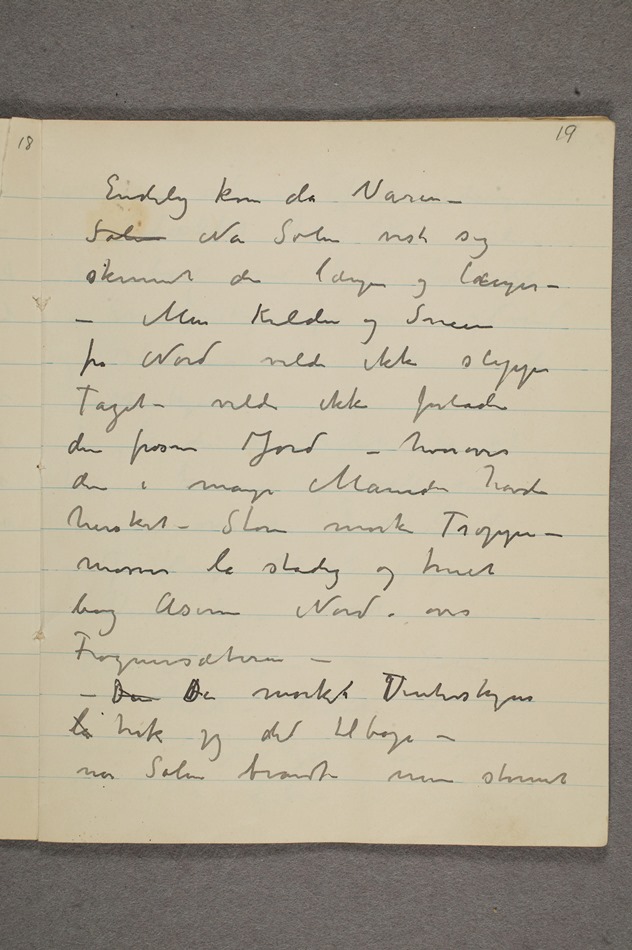 18
19
Endelig kom da Våren –
Solen Når Solen viste sig
skinnet den længer og længer –
– Men Kulden og Sneen
fra Nord vilde ikke slippe
Taget – vilde ikke forlade
den frosne Jord – hvorover
den i mange Måneder havde
hersket – Store mørke Trop
masser lå stadig og truet
bag Åserne Nord. over
Frognersæteren –
– Den De mørke Vinterskyer
lå trak sig det tilbage –
når Solen brændte men stormet